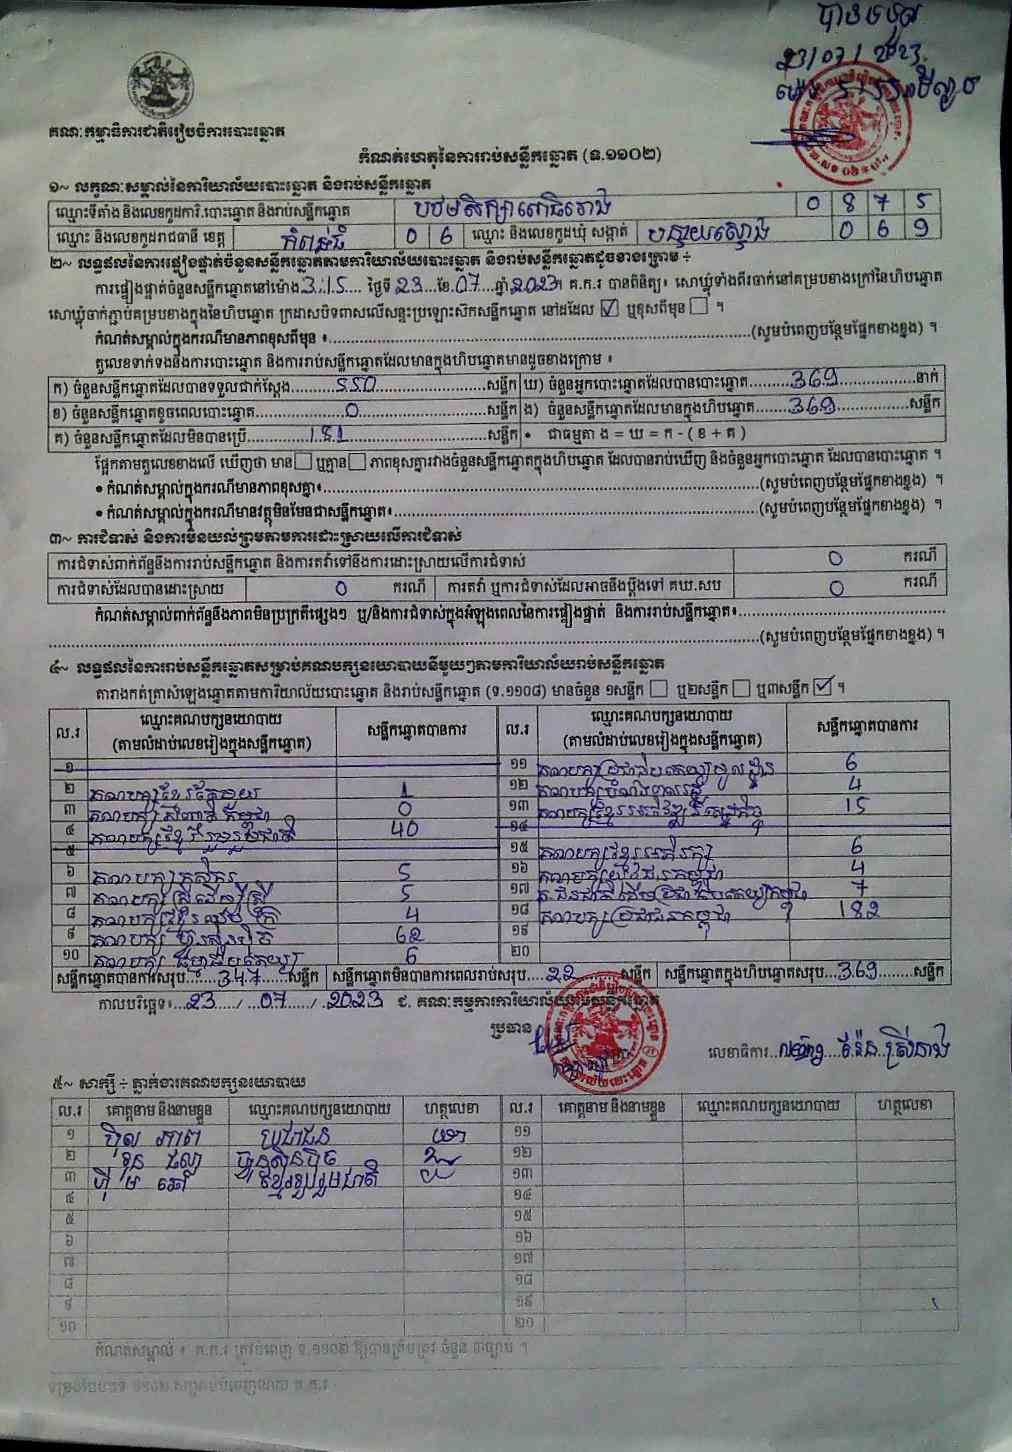 បានទទួល
23/07/2023
គណៈកម្មាធិការជាតិរៀបចំការបោះឆ្នោត
កំណត់ហេតុនៃការរាប់សន្លឹកឆ្នោត (ទ.១១០២)
១~ លក្ខណៈសម្គាល់នៃការិយាល័យបោះឆ្នោត និងរាប់សន្លឹកឆ្នោត
ឈ្មោះទីតាំង និងលេខកូដការិ.បោះឆ្នោត និងរាប់សន្លឹកឆ្នោត បឋមសិក្សាពោធិរោង 0 8 7 5
ឈ្មោះ និងលេខកូដរាជធានី ខេត្ត កំពង់ធំ 0 6 ឈ្មោះ និងលេខកូដឃុំ សង្កាត់ បន្ទាយស្ទោង 0 6 9
២~ លទ្ធផលនៃការផ្ទៀងផ្ទាត់ចំនួនសន្លឹកឆ្នោតតាមការិយាល័យបោះឆ្នោត និងរាប់សន្លឹកឆ្នោតដូចខាងក្រោម ÷
ការផ្ទៀងផ្ទាត់ចំនួនសន្លឹកឆ្នោតនៅម៉ោង 3:15 ថ្ងៃទី 23 ខែ 07 ឆ្នាំ 2023។ គ.ក.រ បានពិនិត្យ៖ សោឃ្លុំទាំងពីរចាក់នៅគម្របខាងក្រៅនៃហិបឆ្នោត
សោឃ្លុំចាក់ភ្ជាប់គម្របខាងក្នុងនៃហិបឆ្នោត ក្រដាសបិទពាសលើសន្ទះប្រឡោះស៊កសន្លឹកឆ្នោត នៅដដែល ☑ ឬខុសពីមុន ☐ ។
កំណត់សម្គាល់ក្នុងករណីមានភាពខុសពីមុន ៖ (សូមបំពេញបន្ថែមផ្នែកខាងខ្នង) ។
តួលេខទាក់ទងនឹងការបោះឆ្នោត និងការរាប់សន្លឹកឆ្នោតដែលមានក្នុងហិបឆ្នោតមានដូចខាងក្រោម ៖
ក) ចំនួនសន្លឹកឆ្នោតដែលបានទទួលជាក់ស្តែង 550 សន្លឹក ឃ) ចំនួនអ្នកបោះឆ្នោតដែលបានបោះឆ្នោត 369 នាក់
ខ) ចំនួនសន្លឹកឆ្នោតខូចពេលបោះឆ្នោត 0 សន្លឹក ង) ចំនួនសន្លឹកឆ្នោតដែលមានក្នុងហិបឆ្នោត 369 សន្លឹក
គ) ចំនួនសន្លឹកឆ្នោតដែលមិនបានប្រើ 181 សន្លឹក • ជាធម្មតា ង = ឃ = ក - ( ខ + គ )
ផ្អែកតាមតួលេខខាងលើ ឃើញថា មាន ☐ ឬគ្មាន ☐ ភាពខុសគ្នារវាងចំនួនសន្លឹកឆ្នោតក្នុងហិបឆ្នោត ដែលបានរាប់ឃើញ និងចំនួនអ្នកបោះឆ្នោត ដែលបានបោះឆ្នោត ។
• កំណត់សម្គាល់ក្នុងករណីមានភាពខុសគ្នា៖ (សូមបំពេញបន្ថែមផ្នែកខាងខ្នង) ។
• កំណត់សម្គាល់ក្នុងករណីមានវត្ថុមិនមែនជាសន្លឹកឆ្នោត៖ (សូមបំពេញបន្ថែមផ្នែកខាងខ្នង) ។
៣~ ការជំទាស់ និងការមិនយល់ព្រមតាមការដោះស្រាយលើការជំទាស់
ការជំទាស់ពាក់ព័ន្ធនឹងការរាប់សន្លឹកឆ្នោត និងការតវ៉ាទៅនឹងការដោះស្រាយលើការជំទាស់ 0 ករណី
ការជំទាស់ដែលបានដោះស្រាយ 0 ករណី ការតវ៉ា ឬការជំទាស់ដែលអាចនឹងប្តឹងទៅ គឃ.សប 0 ករណី
កំណត់សម្គាល់ពាក់ព័ន្ធនឹងភាពមិនប្រក្រតីផ្សេងៗ ឬ/និងការជំទាស់ក្នុងអំឡុងពេលនៃការផ្ទៀងផ្ទាត់ និងការរាប់សន្លឹកឆ្នោត៖
(សូមបំពេញបន្ថែមផ្នែកខាងខ្នង) ។
៤~ លទ្ធផលនៃការរាប់សន្លឹកឆ្នោតសម្រាប់គណបក្សនយោបាយនីមួយៗតាមការិយាល័យរាប់សន្លឹកឆ្នោត
តារាងកត់ត្រាសំឡេងឆ្នោតតាមការិយាល័យបោះឆ្នោត និងរាប់សន្លឹកឆ្នោត (ទ.១១០៨) មានចំនួន ១សន្លឹក ☐ ឬ២សន្លឹក ☐ ឬ៣សន្លឹក ☑ ។
ល.រ ឈ្មោះគណបក្សនយោបាយ (តាមលំដាប់លេខរៀងក្នុងសន្លឹកឆ្នោត) សន្លឹកឆ្នោតបានការ ល.រ ឈ្មោះគណបក្សនយោបាយ (តាមលំដាប់លេខរៀងក្នុងសន្លឹកឆ្នោត) សន្លឹកឆ្នោតបានការ
១ ១១ គណបក្សប្រជាធិបតេយ្យមូលដ្ឋាន 6
២ គណបក្សខ្មែរតែមួយ 1 ១២ 4
៣ គណបក្ស 0 ១៣ គណបក្សខ្មែរ 15
៤ គណបក្សខ្មែររួបរួមជាតិ 40 ១៤
៥ ១៥ គណបក្សខ្មែរអភិរក្ស 6
៦ គណបក្សកសិករ 5 ១៦ គណបក្សយុវជនកម្ពុជា 4
៧ គណបក្សស្ត្រីដើម្បីស្ត្រី 5 ១៧ 7
៨ គណបក្ស 4 ១៨ គណបក្សប្រជាជនកម្ពុជា 182
៩ គណបក្ស ហ្វ៊ុនស៊ិនប៉ិច 62 ១៩
១០ គណបក្ស 6 ២០
សន្លឹកឆ្នោតបានការសរុប 347 សន្លឹក សន្លឹកឆ្នោតមិនបានការពេលរាប់សរុប 22 សន្លឹក សន្លឹកឆ្នោតក្នុងហិបឆ្នោតសរុប 369 សន្លឹក
កាលបរិច្ឆេទ៖ 23 / 07 / 2023 ជ. គណៈកម្មការការិយាល័យរាប់សន្លឹកឆ្នោត
ប្រធាន
លេខាធិការ
៥~ សាក្សី ÷ ភ្នាក់ងារគណបក្សនយោបាយ
ល.រ គោត្តនាម និងនាមខ្លួន ឈ្មោះគណបក្សនយោបាយ ហត្ថលេខា ល.រ គោត្តនាម និងនាមខ្លួន ឈ្មោះគណបក្សនយោបាយ ហត្ថលេខា
១ ប្រជាជន ១១
២ ហ្វ៊ុនស៊ិនប៉ិច ១២
៣ ខ្មែររួបរួមជាតិ ១៣
៤ ១៤
៥ ១៥
៦ ១៦
៧ ១៧
៨ ១៨
៩ ១៩
១០ ២០
កំណត់សម្គាល់ ៖ គ.ក.រ ត្រូវបំពេញ ទ.១១០២ ឱ្យបានត្រឹមត្រូវ ចំនួន ៣ច្បាប់ ។